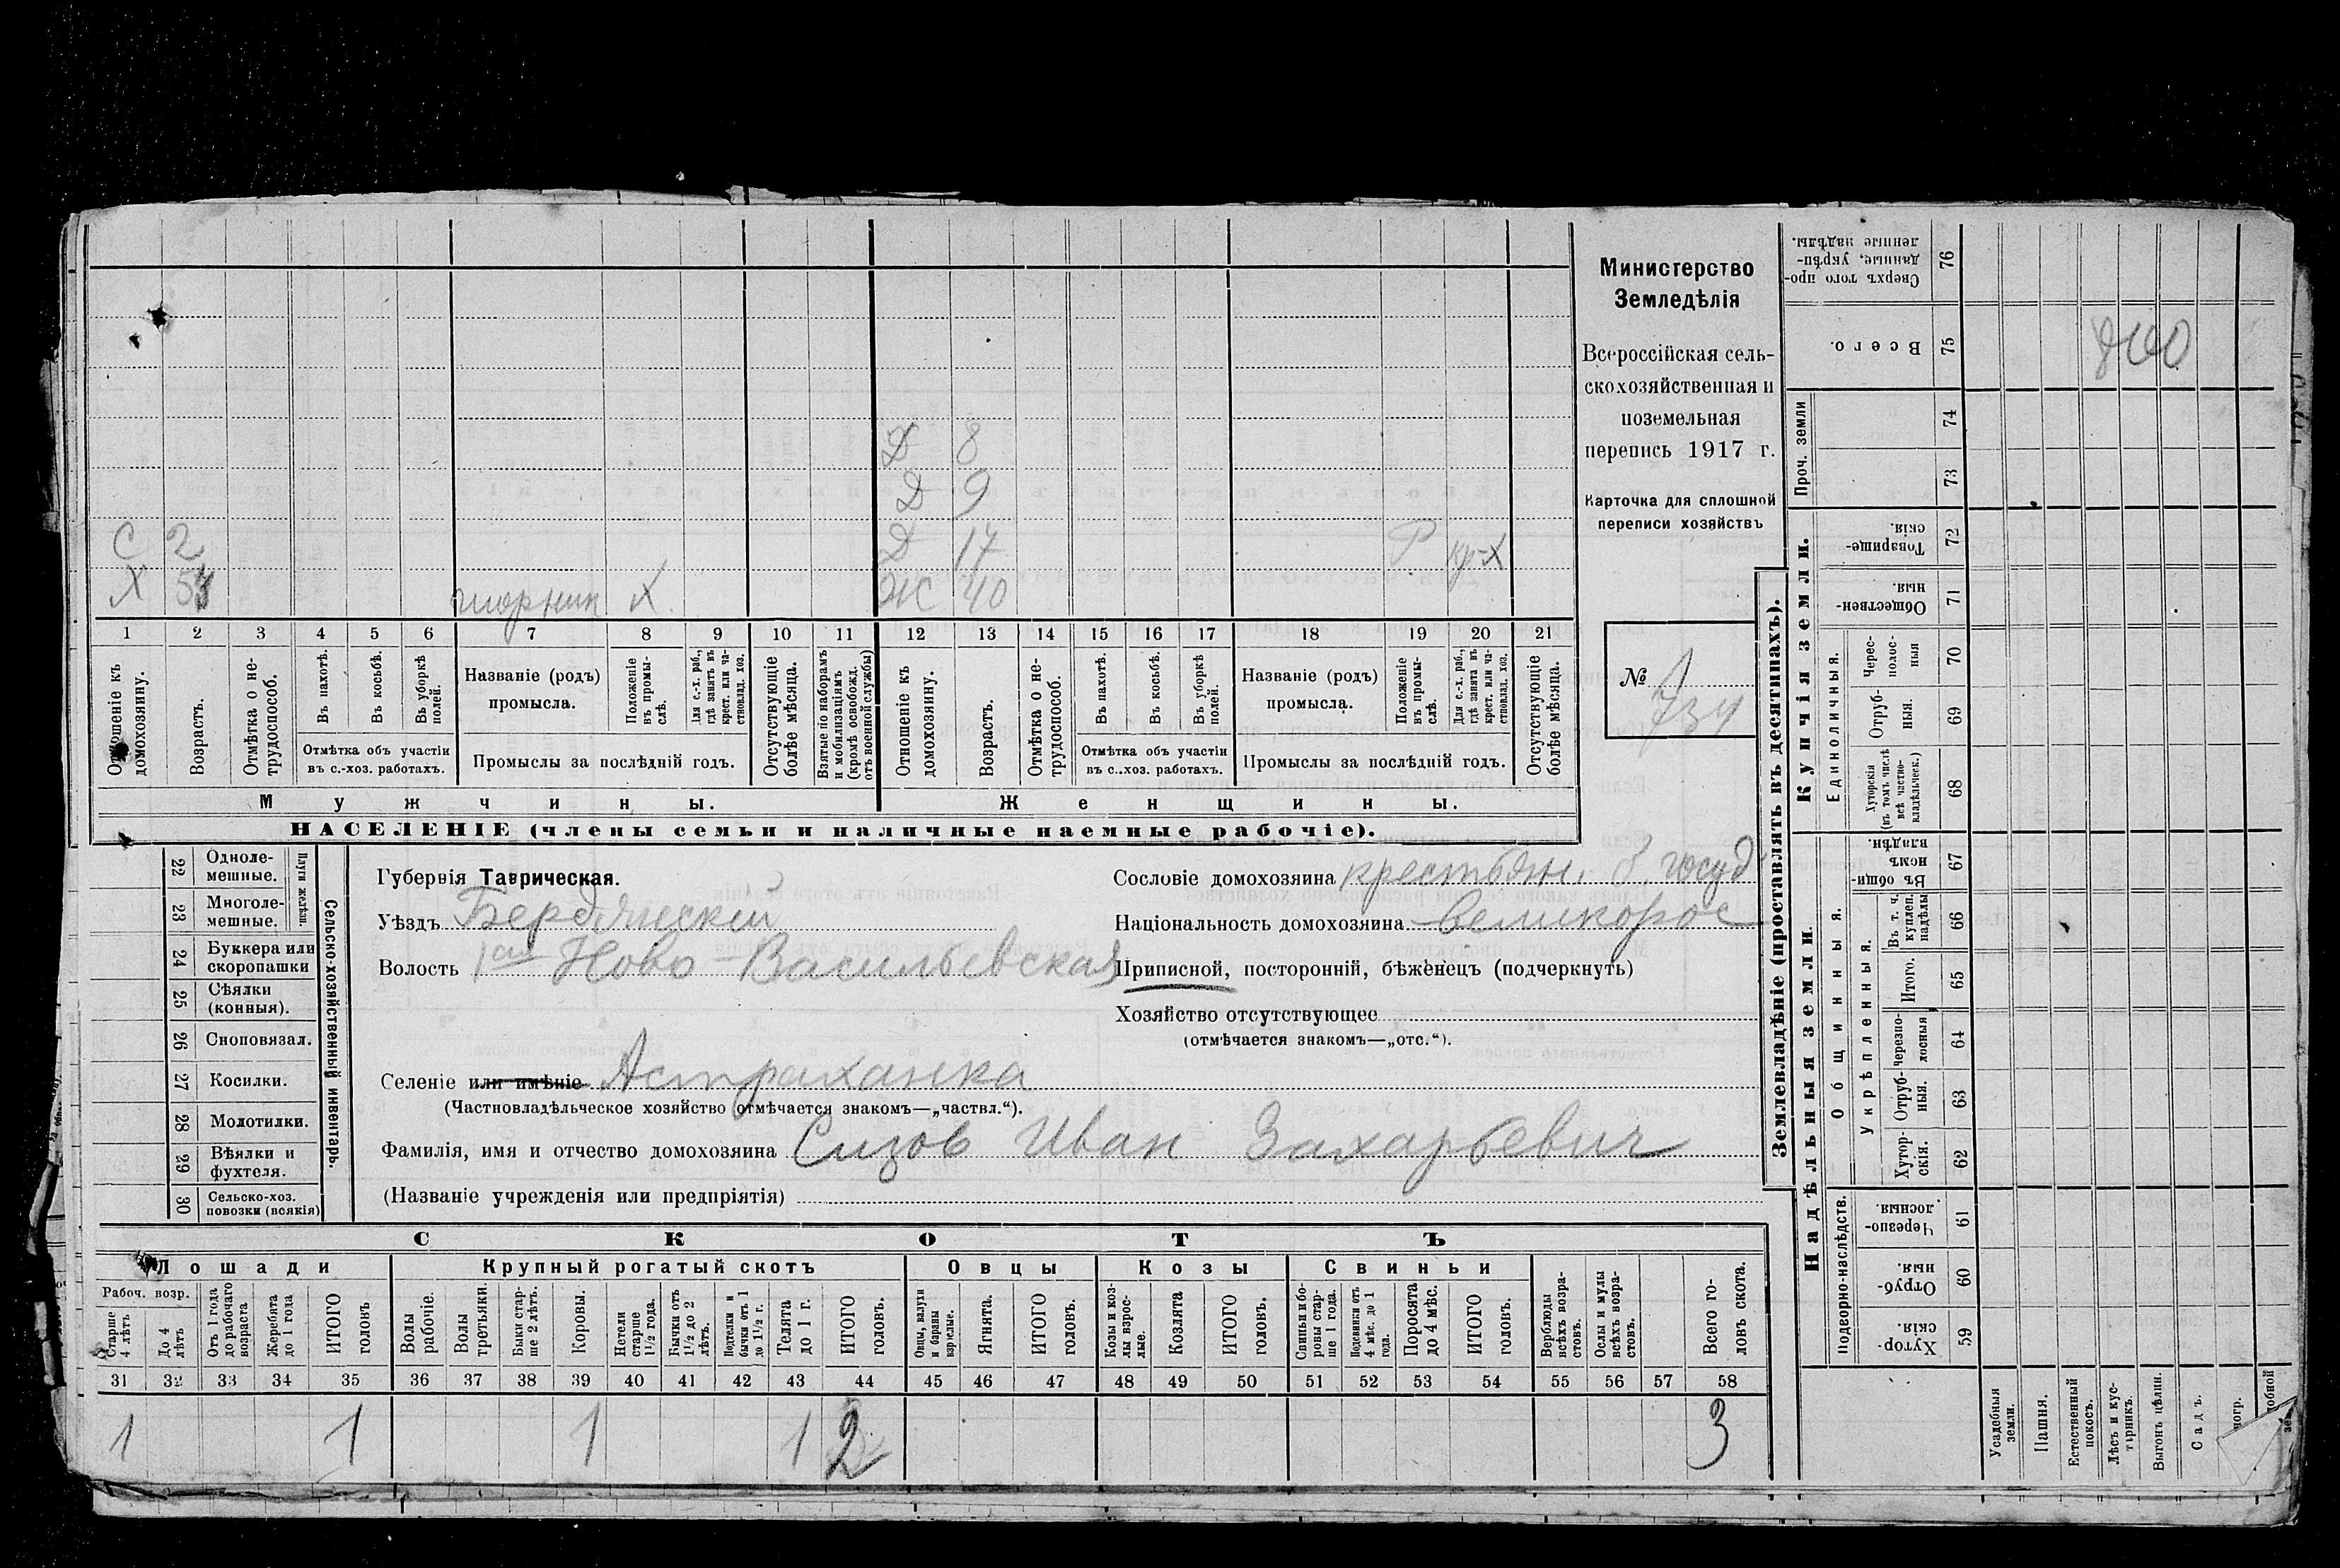 С 2
Х
шорник Х
Д 8
Д 9
Д 14 Р кр-х
Ж 40
1 2 3 4 5 6 7 8 9 10 11 12 13 14 15 16 17 18 19 20 21
Отношеніе къ домохозяину.
Возрастъ.
Отмѣтка о не-
трудоспособ.
Въ пахотѣ.
Въ косьбѣ.
Въ уборкѣ
полей.
Отмѣтка объ участіи
въ с.-хоз. работахъ.
Названіе (родъ)
промысла.
Положеніе
въ промы-
слѣ.
Для с.-х. раб.,
гдѣ занятъ въ
крест. или ча-
стновлад. хоз.
Промыслы за послѣдній годъ.
Отсутствующіе
болѣе мѣсяца.
Взятые по наборамъ
и мобилизаціямъ
(кромѣ освобожд.
отъ военной службы)
Отношеніе къ
домохозяину.
Возрастъ.
Отмѣтка о не-
трудоспособ.
Въ пахотѣ.
Въ косьбѣ.
Въ уборкѣ
полей.
Отмѣтка объ участіи
въ с..хоз. работахъ.
Названіе (родъ)
промысла.
Положеніе
въ промы-
слѣ.
Для с.-х. раб.,
гдѣ занята въ
крест. или ча-
стновлад. хоз.
Промыслы за послѣдній годъ.
Отсутствующіе
болѣе мѣсяца.
Мужчины.
Женщины.
НАСЕЛЕНІЕ (члены семьи и наличные наемные рабочіе).
Министерство
Земледѣлія
Всероссійская сель-
скохозяйственная и
поземельная
перепись 1917 г.
Карточка для сплошной
переписи хозяйствъ
№
734
22 Одноле-
мешные.
23 Многоле-
мешные.
Плуги желѣзн.
24 Буккера или
скоропашки
25 Сѣялки
(конныя).
26 Сноповязал.
27 Косилки.
28 Молотилки.
29 Вѣялки и
фухтеля.
30 Сельско-хоз.
повозки (всякія)
Сельско-хозяйственный инвентарь.
Губернія Таврическая.
Уѣздъ Бердянский
Волость 1ая Ново-Васильевская
Селеніе или имѣніе Астраханка
(Частновладѣльческое хозяйство отмѣчается знакомъ—„частвл.“).
Фамилія, имя и отчество домохозяина Сизов Иван Захарьевич
(Названіе учрежденія или предпріятія)
Сословіе домохозяина крестьян. б. госуд
Національность домохозяина великорос
Приписной, посторонній, бѣженецъ (подчеркнуть)
Хозяйство отсутствующее
(отмѣчается знакомъ—„отс.“).
СКОТЪ
Лошади
Крупный рогатый скотъ
Овцы
Козы
Свиньи
Рабоч. возр.
Старше
4 лѣтъ
До 4
лѣтъ
Отъ 1 года
до рабочаго
возраста
Жеребята
до 1 года
ИТОГО
головъ
Волы
рабочіе.
Волы
третьяки.
Быки стар-
ше 2 лѣтъ.
Коровы.
Нетели
старше
1½ года.
Бычки отъ
1½ до 2
лѣтъ.
Подтелки и
бычки отъ 1
до 1½ г.
Телята
до 1 г.
ИТОГО
головъ.
Овцы, валухи
и бараны
взрослые.
Ягнята.
ИТОГО
головъ.
Козы и коз-
лы взрос-
лые.
Козлята
ИТОГО
головъ.
Свиньи и бо-
ровы стар-
ше 1 года.
Подсвинки отъ
4 мѣс. до 1
года.
Поросята
до 4 мѣс.
ИТОГО
головъ.
Верблюды
всѣхъ возра-
стовъ.
Ослы и мулы
всѣхъ возра-
стовъ.
Всего го-
ловъ скота.
31 32 33 34 35 36 37 38 39 40 41 42 43 44 45 46 47 48 49 50 51 52 53 54 55 56 57 58
1 1 1 1 2 3
Землевладѣніе (проставлять въ десятинахъ).
Сверхъ того про-
данные, укрѣп-
ленные надѣлы.
76
Всего.
75
800
Проч. земли
74
73
Купчія земли.
Товарище-
скія.
72
Обществен-
ныя.
71
Единоличныя.
Черес-
полос-
ныя
70
Отруб-
ныя.
69
Хуторскія
(въ томъ числѣ
всѣ частно-
владѣльческ.)
68
Надѣльныя земли.
Общинныя.
Въ общи-
нномъ
владѣн.
67
Укрѣпленныя.
Въ т. ч.
куплен.
надѣлы
66
Итого.
65
Черезпо-
лосныя
64
Отруб-
ныя.
63
Хутор-
скія.
62
Подворно-наслѣдств.
Черезпо-
лосныя.
61
Отруб-
ныя.
60
Хутор-
скія.
59
Усадебныя
земли.
Пашня.
Естественный
покосъ.
Лѣсъ и кус-
тарникъ.
Выгонъ цѣлин.
Садъ.